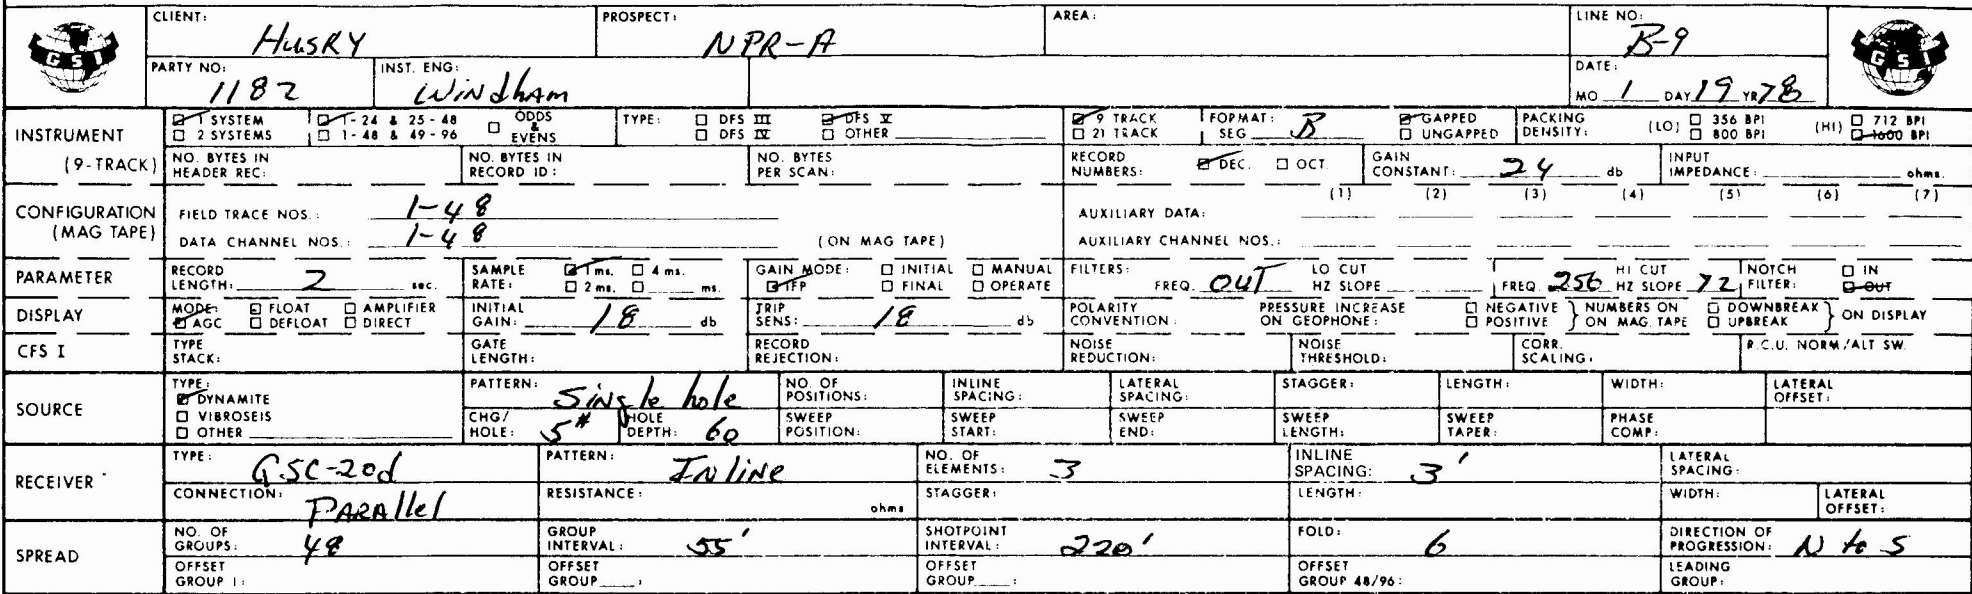 CLIENT: Husky PROSPECT: NPR-A AREA: LINE NO: B-9
GSI GSI
PARTY NO: 1182 INST. ENG: Windham DATE: MO 1 DAY 19 YR 78
INSTRUMENT (9-TRACK)
☑ 1 SYSTEM ☑ 1-24 & 25-48 ☐ ODDS & EVENS TYPE: ☐ DFS III ☑ DFS V ☑ 9 TRACK FORMAT: SEG B ☑ GAPPED PACKING DENSITY: (LO) ☐ 356 BPI (HI) ☐ 712 BPI
☐ 2 SYSTEMS ☐ 1-48 & 49-96 ☐ DFS IV ☐ OTHER ☐ 21 TRACK ☐ UNGAPPED ☐ 800 BPI ☑ 1600 BPI
NO. BYTES IN HEADER REC: NO. BYTES IN RECORD ID: NO. BYTES PER SCAN: RECORD NUMBERS: ☑ DEC. ☐ OCT. GAIN CONSTANT: 24 db INPUT IMPEDANCE: ohms.
CONFIGURATION (MAG TAPE)
(1) (2) (3) (4) (5) (6) (7)
FIELD TRACE NOS.: 1-48 AUXILIARY DATA:
DATA CHANNEL NOS.: 1-48 (ON MAG TAPE) AUXILIARY CHANNEL NOS.:
PARAMETER RECORD LENGTH: 2 sec. SAMPLE RATE: ☑ 1 ms. ☐ 4 ms. ☐ 2 ms. ☐ ms. GAIN MODE: ☐ INITIAL ☐ MANUAL ☑ IFP ☐ FINAL ☐ OPERATE FILTERS: FREQ. OUT LO CUT HZ SLOPE FREQ. 256 HI CUT HZ SLOPE 72 NOTCH FILTER: ☐ IN ☑ OUT
DISPLAY MODE: ☐ FLOAT ☐ AMPLIFIER ☑ AGC ☐ DEFLOAT ☐ DIRECT INITIAL GAIN: 18 db TRIP SENS: 18 db POLARITY CONVENTION: PRESSURE INCREASE ON GEOPHONE: ☐ NEGATIVE ☐ POSITIVE } NUMBERS ON ON MAG. TAPE ☐ DOWNBREAK ☐ UPBREAK } ON DISPLAY
CFS I TYPE STACK: GATE LENGTH: RECORD REJECTION: NOISE REDUCTION: NOISE THRESHOLD: CORR. SCALING: R.C.U. NORM/ALT SW.
SOURCE TYPE: ☑ DYNAMITE ☐ VIBROSEIS ☐ OTHER
PATTERN: Single hole NO. OF POSITIONS: INLINE SPACING: LATERAL SPACING: STAGGER: LENGTH: WIDTH: LATERAL OFFSET:
CHG/HOLE: 5# HOLE DEPTH: 60 SWEEP POSITION: SWEEP START: SWEEP END: SWEEP LENGTH: SWEEP TAPER: PHASE COMP:
RECEIVER TYPE: GSC-20d PATTERN: Inline NO. OF ELEMENTS: 3 INLINE SPACING: 3' LATERAL SPACING:
CONNECTION: Parallel RESISTANCE: ohms STAGGER: LENGTH: WIDTH: LATERAL OFFSET:
SPREAD NO. OF GROUPS: 48 GROUP INTERVAL: 55' SHOTPOINT INTERVAL: 220' FOLD: 6 DIRECTION OF PROGRESSION: N to S
OFFSET GROUP 1: OFFSET GROUP: OFFSET GROUP: OFFSET GROUP 48/96: LEADING GROUP: